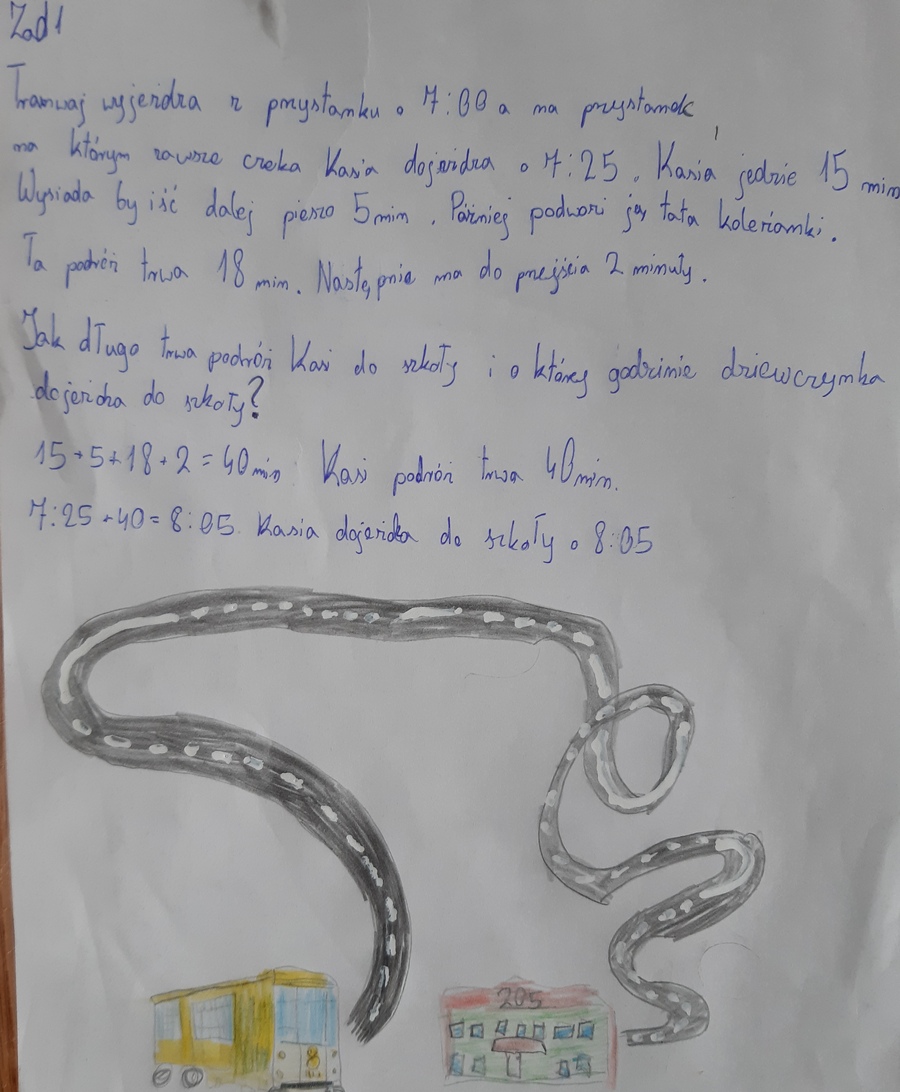 Zad 1
Tramwaj wyjeżdża z przystanku o 7:00 a na przystanek
na którym zawsze czeka Kasia dojeżdża o 7:25. Kasia jedzie 15 min
Wysiada by iść dalej pieszo 5min. Później podwozi ją tata koleżanki.
Ta podróż trwa 18 min. Następnie ma do przejścia 2 minuty.
Jak długo trwa podróż Kasi do szkoły i o której godzinie dziewczynka
dojeżdża do szkoły?
15+5+18+2=40min Kasi podróż trwa 40min.
7:25+40=8:05. Kasia dojeżdża do szkoły o 8:05
205
8